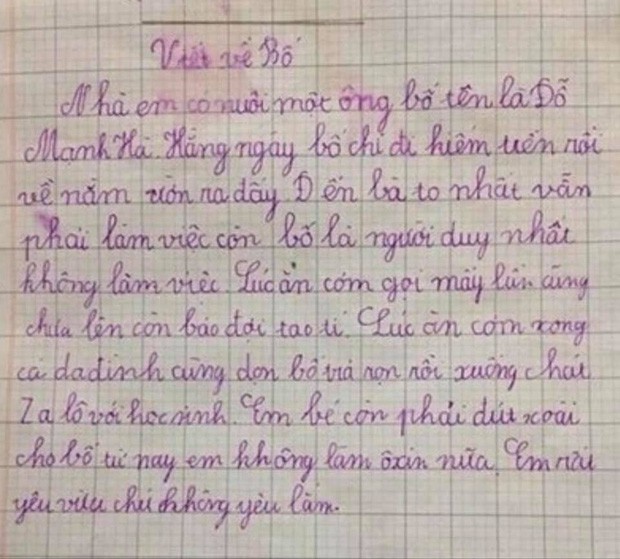 Viết về Bố
Nhà em có nuôi một ông bố tên là Đỗ
Mạnh Hà. Hằng ngày bố chỉ đi hiếm tiền rồi
về nằm ườn ra đấy. Đ ến bà to nhất vẫn
phải làm việc còn bố là người duy nhất
không làm việc. Lúc ăn cơm gọi mấy lần cũng
chưa lên còn bảo đợi tao tí. Lúc ăn cơm xong
cả da đình cũng dọn bố trả nọn rồi xuống chát
Za lô với học sinh. Em bé còn phải đút xoài
cho bố từ nay em không làm ôxin nữa. Em rất
yêu chứ không yêu lắm.